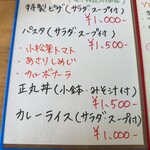 特製ピザ(サラダスープ付)
¥1.000-
パスタ(サラダスープ付)
¥1.500-
・小松菜トマト
・あさりしめじ
・カルボナーラ
正丸丼(小鉢・みそ汁付)
¥1.500-
カレーライス(サラダスープ付)
¥1.000-